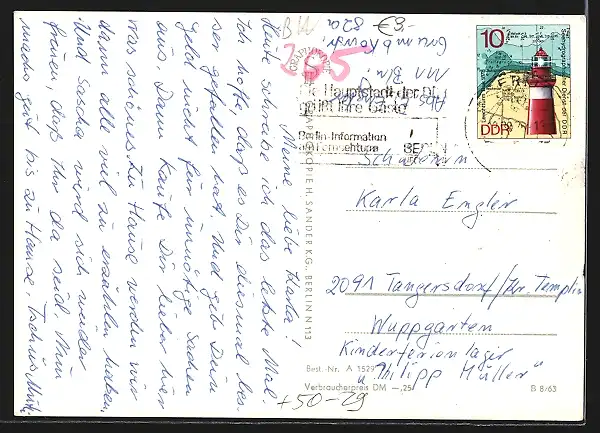 Meine liebe Karla!
Heute schreibe ich das letzte Mal.
Ich hoffe, daß es Dir diesmal bes-
ser gefallen hat. Und gib Dein
Geld nicht für unnötige Sachen
aus. Dann kaufe Dir lieber hier
was schönes. Zu Hause werden wir
dann alle viel zu erzählen haben.
Und Sascha wird sich wieder
freuen daß Ihr da seid. Nun
machs gut bis zu Hause. Tschüs Mutti
Abs.
111 Bln.
82a
€3,-
265
GRAPHOKOPIE H. SANDER KG. BERLIN N 113
Die Hauptstadt der DDR
grüßt ihre Gäste
Berlin-Information
am Fernsehturm
BERLIN
10
DDR
Schülerin
Karla Engler
2091 Tangersdorf/Kr. Templin
Wuppgarten
Kinderferienlager
"Philipp Müller"
Best.-Nr. A 1529
Verbraucherpreis DM -,25
B 8/63
+50-29